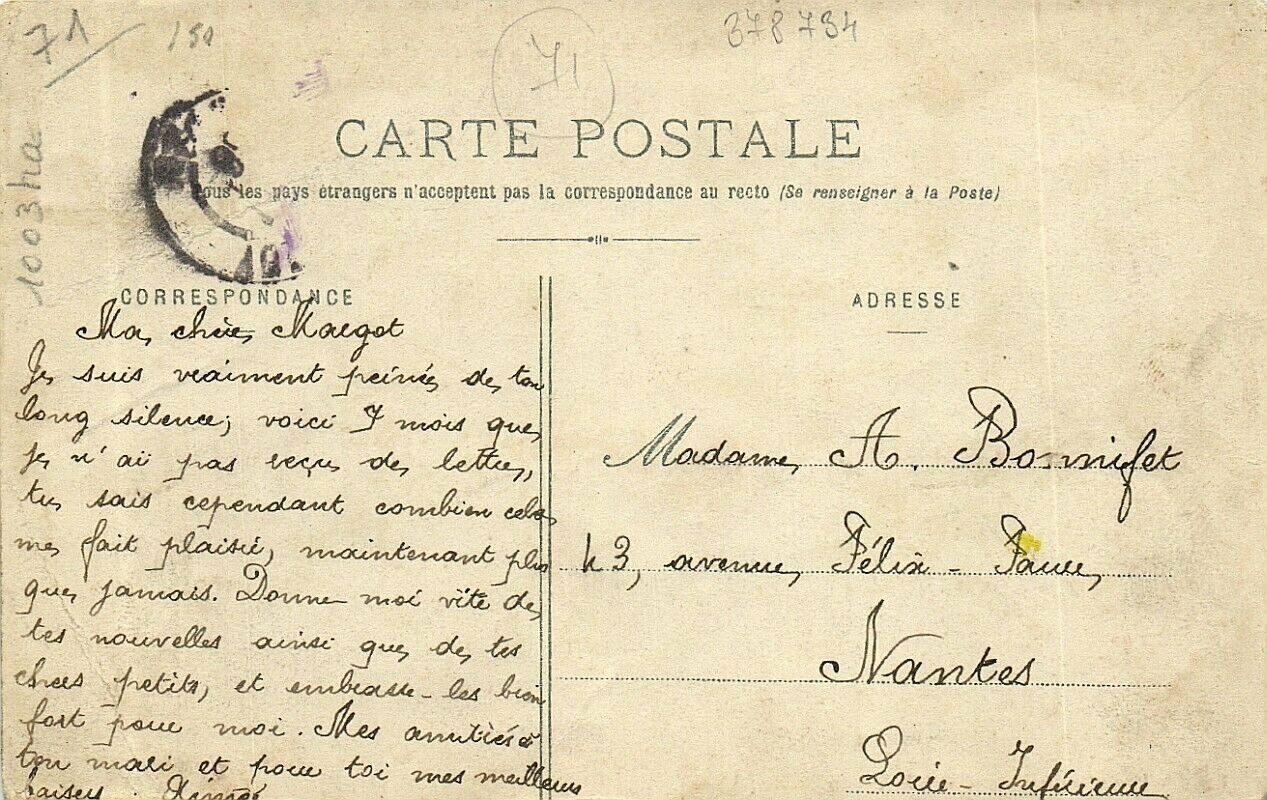 71
150
71
378734
1003ha
CARTE POSTALE
Tous les pays étrangers n'acceptent pas la correspondance au recto (Se renseigner à la Poste)
CORRESPONDANCE
Ma chère Margot
Je suis vraiment peinée de ton
long silence; voici 7 mois que
je n'ai pas reçu de lettre,
tu sais cependant combien cela
me fait plaisir, maintenant plus
que jamais. Donne-moi vite de
tes nouvelles ainsi que de tes
chers petits, et embrasse-les bien
fort pour moi. Mes amitiés à
ton mari et pour toi mes meilleurs
baisers. Aimée
ADRESSE
Madame A. Bonnifet
43, avenue Félix-Faure
Nantes
Loire-Inférieure